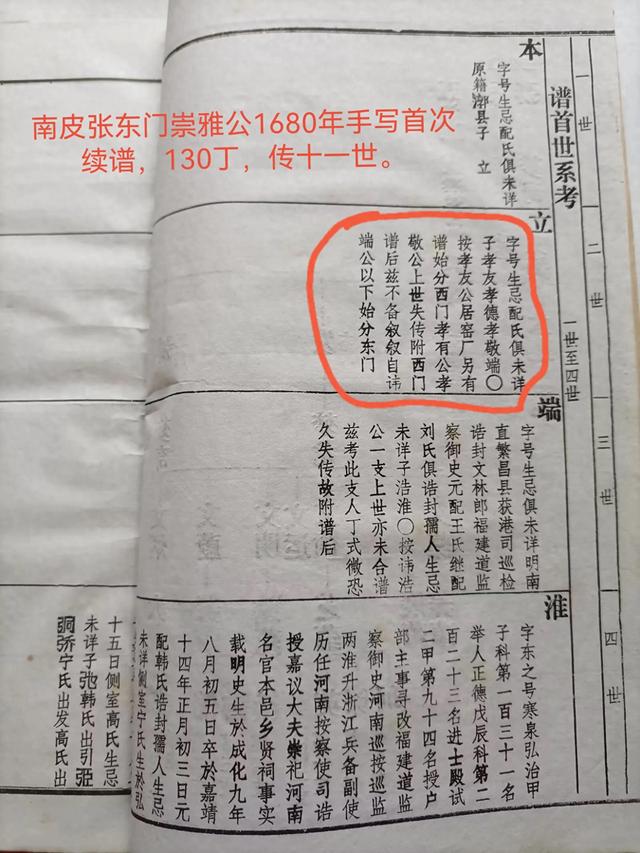 南皮张东门崇雅公1680年手写首次
续谱，130丁，传十一世。
一世
二世
三世
四世
谱首世系考
一世至四世
本
字号生忌配氏俱未详
原籍漷县子 立
立
字号生忌配氏俱未详
子孝友孝德孝敬端〇
按孝友公居窑厂另有
谱始分西门孝有公孝
敬公上世失传附西门
谱后兹不备叙叙自讳
端公以下始分东门
端
字号生忌俱未详明南
直繁昌县获港司巡检
诰封文林郎福建道监
察御史元配王氏继配
刘氏俱诰封孺人生忌
未详子浩淮〇按讳浩
公一支上世亦未合谱
兹考此支人丁式微恐
久失传故附谱后
淮
字东之号寒泉弘治甲
子科第一百三十一名
举人正德戊辰科第二
百二十三名进士殿试
二甲第九十四名授户
部主事寻改福建道监
察御史河南巡按巡监
两淮升浙江兵备副使
历任河南按察使司诰
授嘉议大夫崇祀河南
名官本邑乡贤祠事实
载明史生於成化九年
八月初五日卒於嘉靖
十四年正月初三日元
配韩氏诰封孺人生忌
未详侧室宁氏生於弘
十五日侧室高氏生忌
未详子弛韩氏出引
宁氏出发高氏出